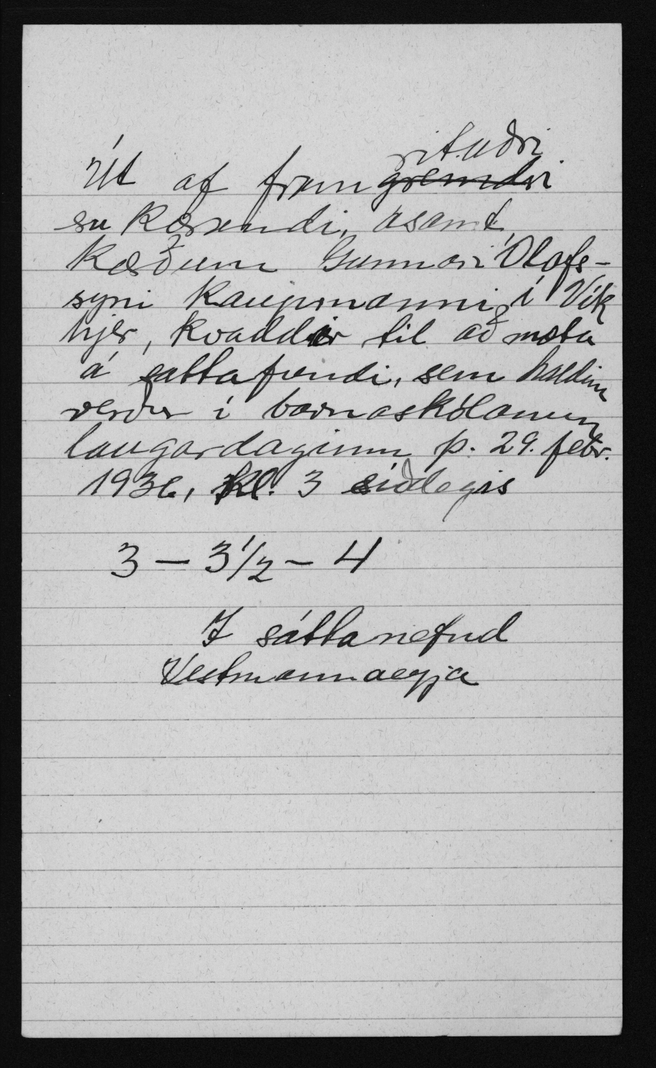 Út af framritaðri
er kærandi, ásamt
kærðum Gunnari Ólafs-
syni kaupmanni í Vík
hjer, kvaddir til að mæta
á sáttafundi, sem haldinn
verður í barnaskólanum
laugardaginn þ. 29. febr.
1936, kl. 3 síðdegis
3 — 3 1/2 — 4
Í sáttanefnd
Vestmannaeyja